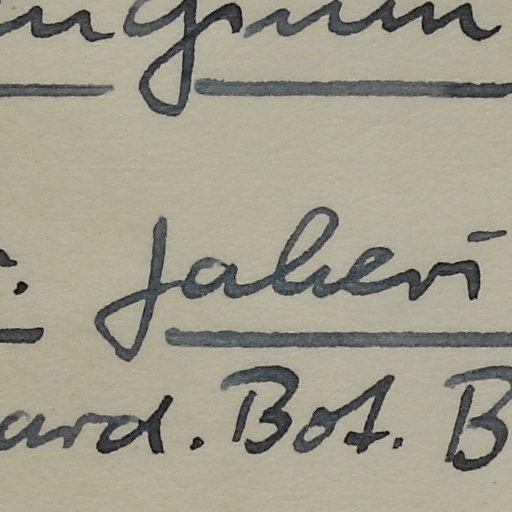 ngium
. Jaheri
ard. Bot. B